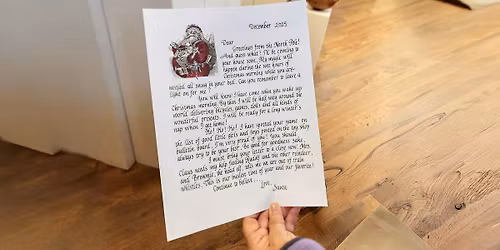 December 2025
Dear
Greetings from the North Pole!
And guess what? I'll be coming to
your house soon. My magic will
happen during the wee hours of
Christmas morning while you are
nestled all snug in your bed. Can you remember to leave a
light on for me?
You will know I have come when you wake up
Christmas morning. By then I will be half way around the
world delivering bicycles, games, dolls and all kinds of
wonderful presents. I will be ready for a long winter's
nap when I get home!
Ho! Ho! Ho! I have spotted your name on
the list of good little girls and boys posted on the toy shop
bulletin board. I'm very proud of you! You should
always try to be your best. Be good for goodness sake.
I must bring your letter to a close now. Mrs.
Claus needs my help feeding Rudolf and the other reindeer,
and Brownie, the head elf, tells me we are out of train
whistles. This is our busiest time of year and our favorite!
Continue to believe...
Love,
Santa